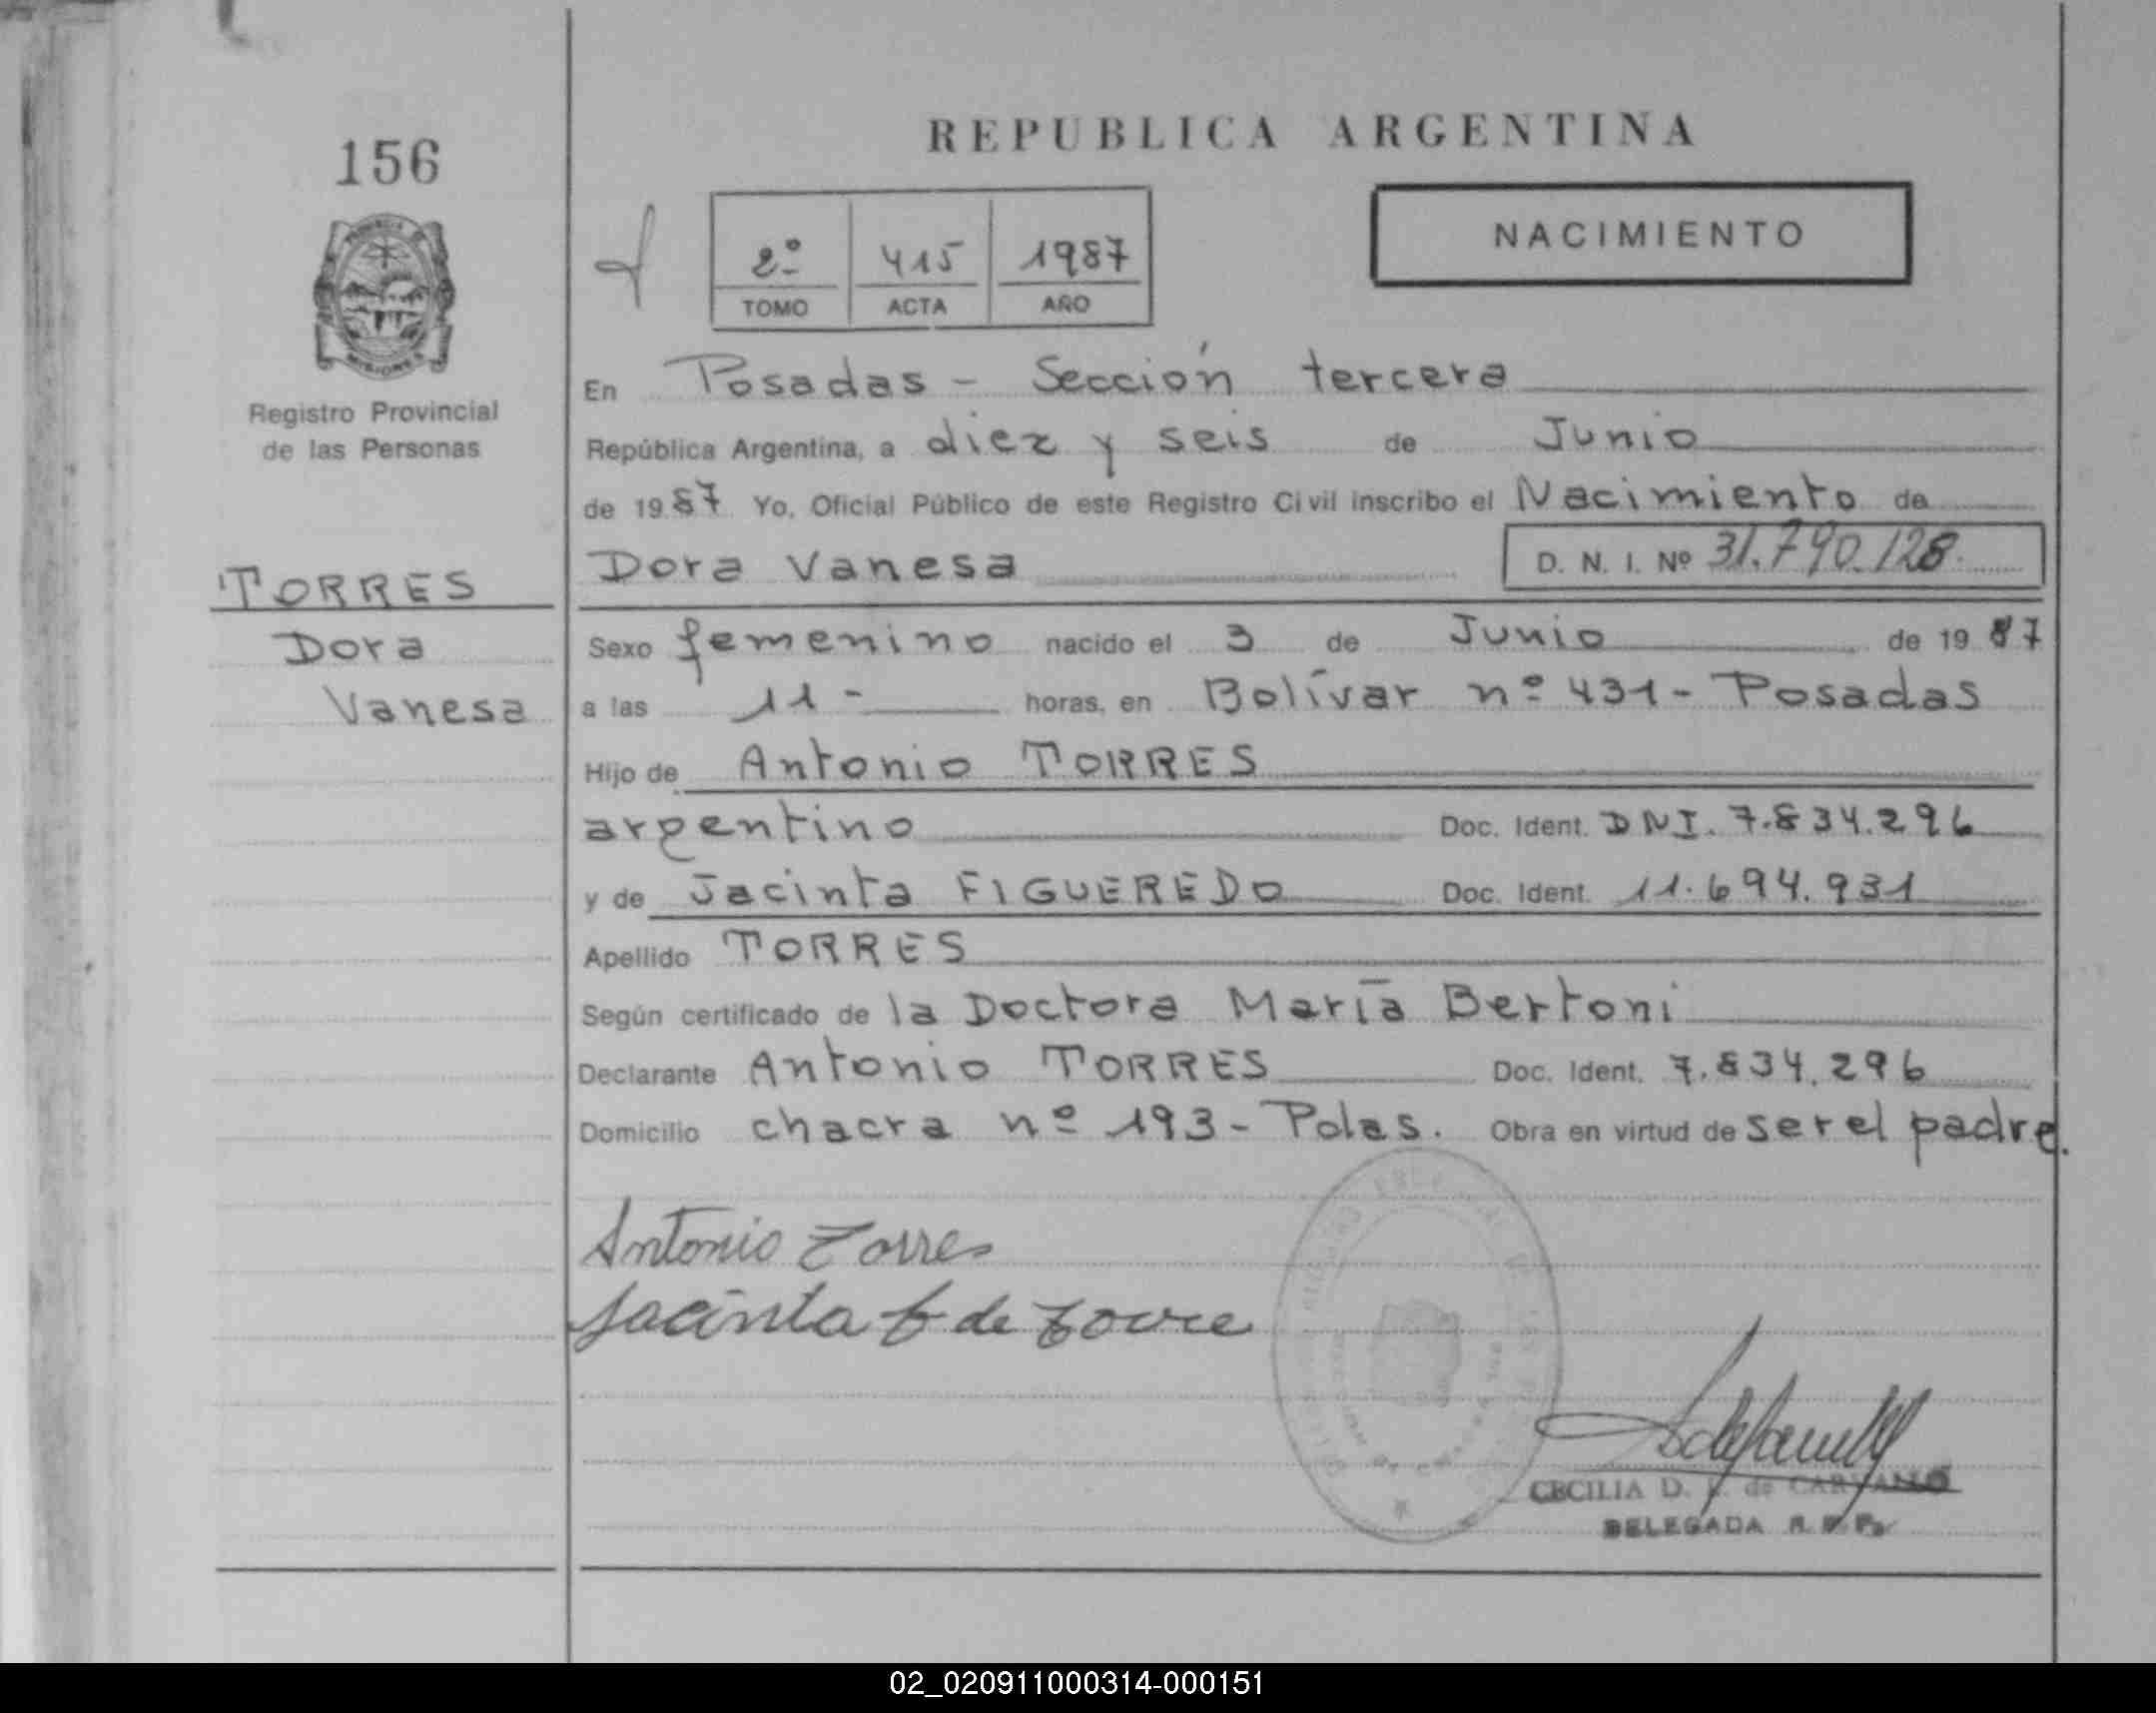 REPUBLICA ARGENTINA
156
NACIMIENTO
2º 415 1987
TOMO ACTA AÑO
En Posadas - Sección tercera
Registro Provincial
de las Personas
República Argentina, a diez y seis de Junio
de 1987 Yo, Oficial Público de este Registro Civil inscribo el Nacimiento de
Dora Vanesa D. N. I. Nº 31.790.128
TORRES
Dora
Vanesa
Sexo femenino nacido el 3 de Junio de 1987
a las 11 - horas, en Bolívar nº 431 - Posadas
Hijo de Antonio TORRES
argentino Doc. Ident. DNI. 7.834.296
y de Jacinta FIGUEREDO Doc. Ident. 11.694.931
Apellido TORRES
Según certificado de la Doctora María Bertoni
Declarante Antonio TORRES Doc. Ident. 7.834.296
Domicilio chacra nº 193 - Pdas. Obra en virtud de ser el padre.
Antonio Torres
Jacinta F de Torre
CECILIA D. de CARVALLO
DELEGADA R. P. P.
02_020911000314-000151